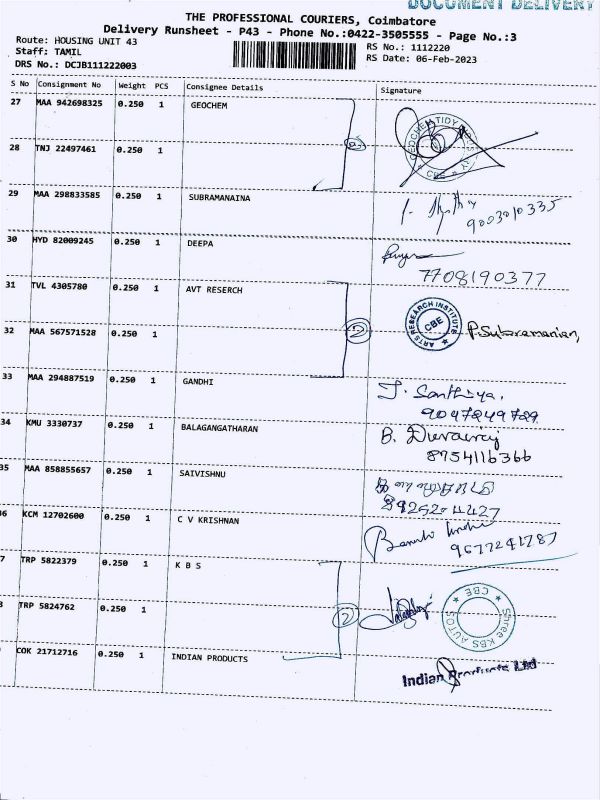 DOCUMENT DELIVERY
THE PROFESSIONAL COURIERS, Coimbatore
Delivery Runsheet - P43 - Phone No.:0422-3505555 - Page No.:3
Route: HOUSING UNIT 43
Staff: TAMIL
DRS No.: DCJB111222003
RS No.: 1112220
RS Date: 06-Feb-2023
S No Consignment No Weight PCS Consignee Details Signature
27 MAA 942698325 0.250 1 GEOCHEM
28 TNJ 22497461 0.250 1
CBE
29 MAA 298833585 0.250 1 SUBRAMANAINA
9003010335
30 HYD 82009245 0.250 1 DEEPA
7708190377
31 TVL 4305780 0.250 1 AVT RESERCH
ARTS RESEARCH INSTITUTE CBE
2 P.Subramanian,
32 MAA 567571528 0.250 1
33 MAA 294887519 0.250 1 GANDHI
J. Santhiya.
9047249729
34 KMU 3330737 0.250 1 BALAGANGATHARAN
B.
8754116366
35 MAA 858855657 0.250 1 SAIVISHNU
36 KCM 12702600 0.250 1 C V KRISHNAN
9677241787
7 TRP 5822379 0.250 1 K B S
2
Shree KBS AUTOS CBE
8 TRP 5824762 0.250 1
COK 21712716 0.250 1 INDIAN PRODUCTS
Indian Products Ltd